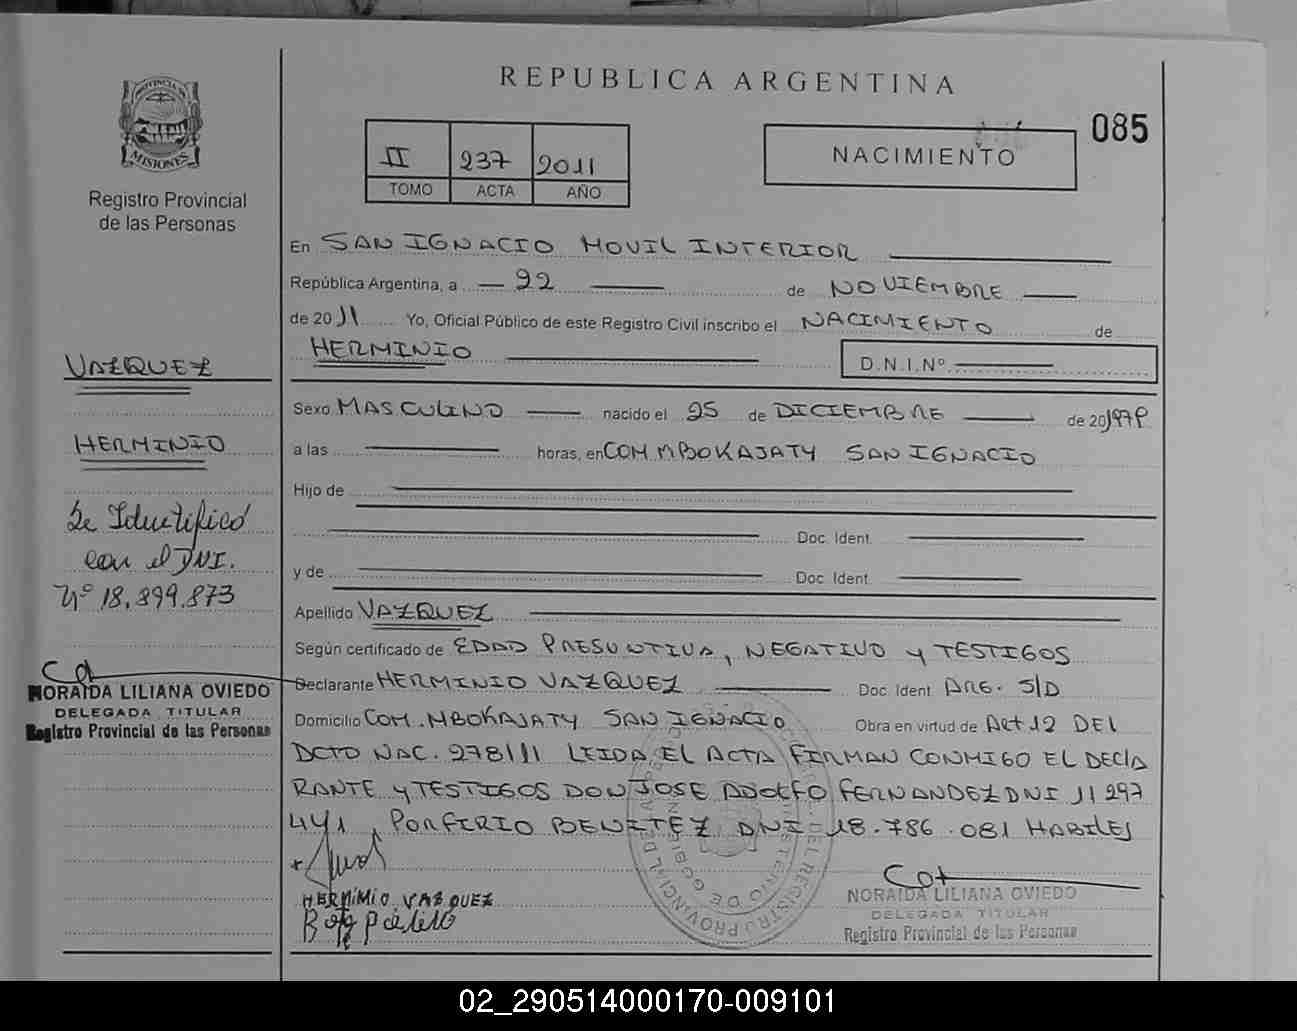 REPUBLICA ARGENTINA
085
NACIMIENTO
II 237 2011
TOMO ACTA AÑO
PROVINCIA DE
MISIONES
Registro Provincial
de las Personas
VAZQUEZ
HERMINIO
Se Identificó
con el DNI.
Nº 18.899.873
NORAIDA LILIANA OVIEDO
DELEGADA TITULAR
Registro Provincial de las Personas
En SAN IGNACIO MOVIL INTERIOR
República Argentina, a 22 de NOVIEMBRE
de 2011 Yo, Oficial Público de este Registro Civil inscribo el NACIMIENTO de
HERMINIO D.N.I.Nº
Sexo MASCULINO nacido el 25 de DICIEMBRE de 20
a las horas, en COM MBOKAJATY SAN IGNACIO
Hijo de
Doc. Ident.
y de Doc. Ident.
Apellido VAZQUEZ
Según certificado de EDAD PRESUNTIVA, NEGATIVO Y TESTIGOS
Declarante HERMINIO VAZQUEZ Doc. Ident. ARG. S/D
Domicilio COM. MBOKAJATY SAN IGNACIO Obra en virtud de Art 12 DEL
DCTO NAC. 278/11 LEIDA EL ACTA FIRMAN CONMIGO EL DECLA
RANTE Y TESTIGOS DON JOSE ADOLFO FERNANDEZ DNI 11 297
441, PORFIRIO BENITEZ DNI 18.786.081 HABILES
HERMIMIO VAZQUEZ
NORAIDA LILIANA OVIEDO
DELEGADA TITULAR
Registro Provincial de las Personas
02_290514000170-009101